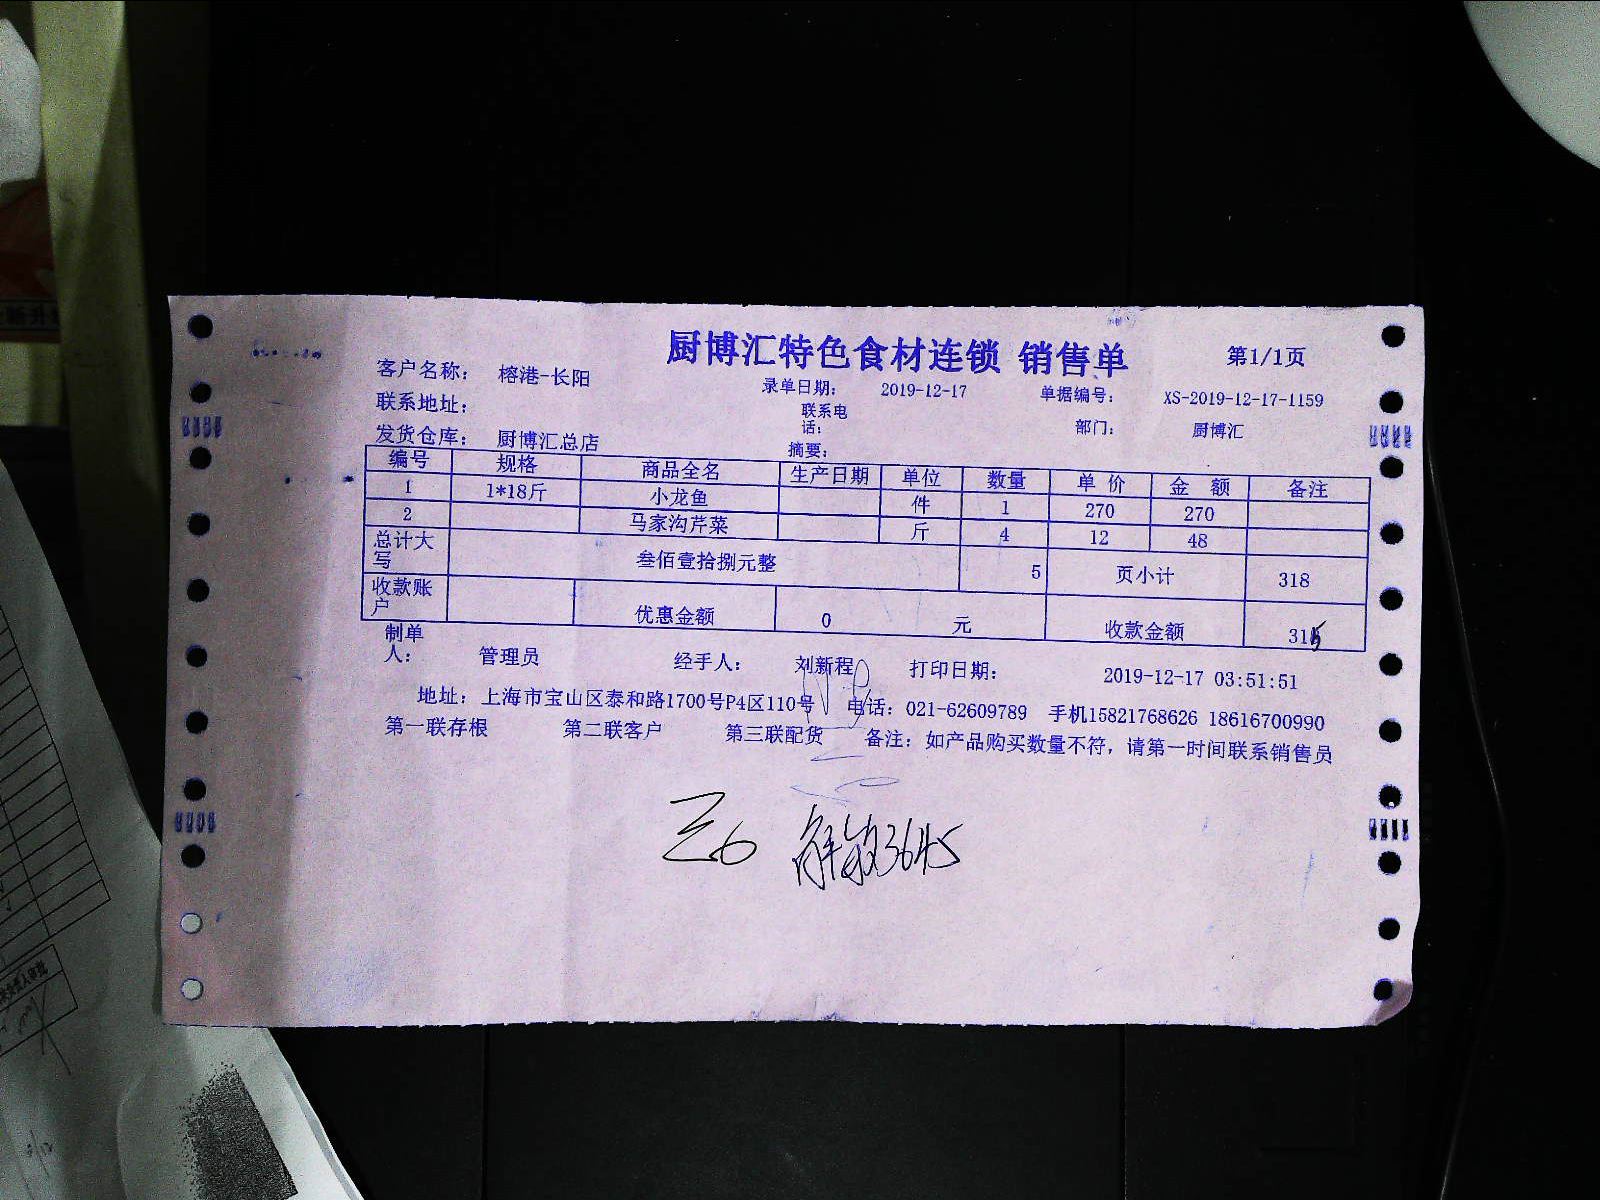 厨博汇特色食材连锁 销售单 第1/1页
客户名称： 榕港-长阳 录单日期： 2019-12-17 单据编号： XS-2019-12-17-1159
联系地址： 联系电话： 部门： 厨博汇
发货仓库： 厨博汇总店 摘要：
编号 规格 商品全名 生产日期 单位 数量 单 价 金 额 备注
1 1*18斤 小龙鱼 件 1 270 270
2 马家沟芹菜 斤 4 12 48
总计大写 叁佰壹拾捌元整 5 页小计 318
收款账户 优惠金额 0 元 收款金额 315
制单人： 管理员 经手人： 刘新程 打印日期： 2019-12-17 03:51:51
地址：上海市宝山区泰和路1700号P4区110号 电话：021-62609789 手机15821768626 18616700990
第一联存根 第二联客户 第三联配货 备注：如产品购买数量不符，请第一时间联系销售员
3645